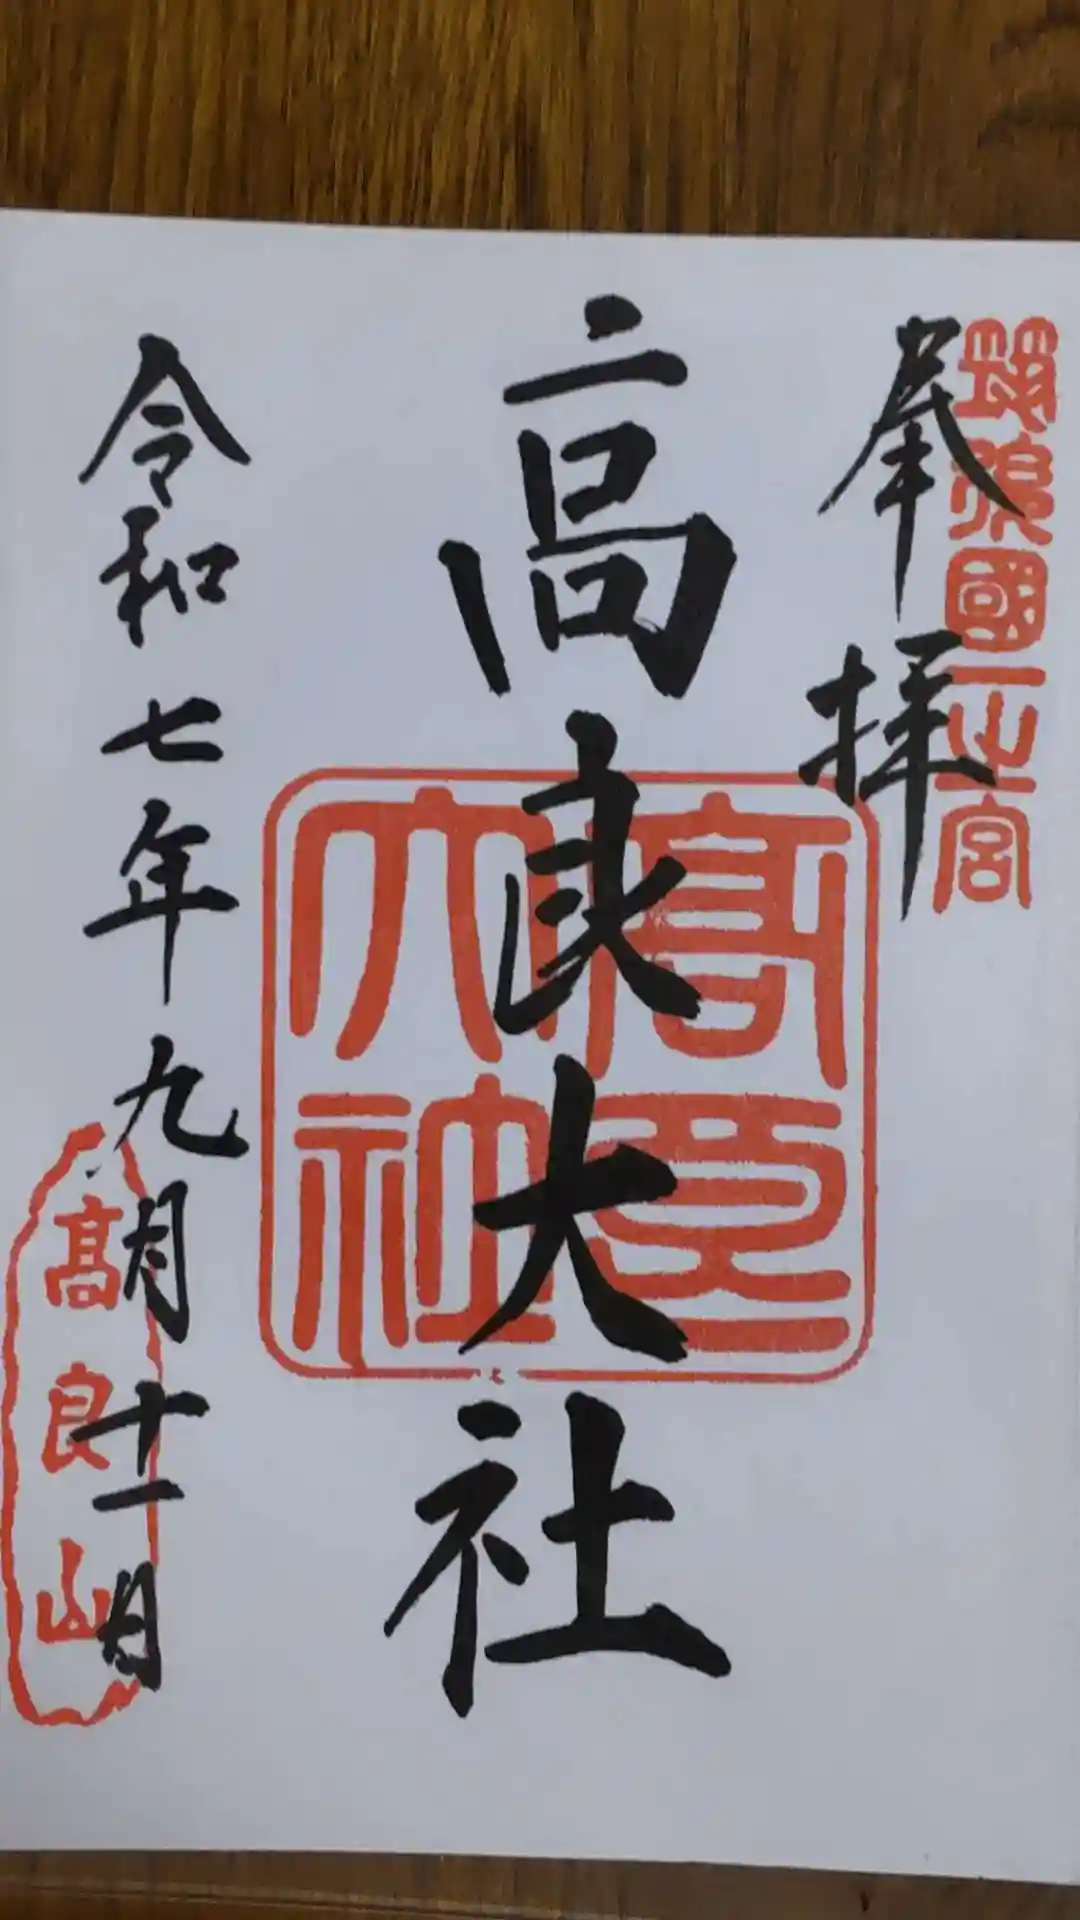 筑後國一之宮
奉拝
高良大社
高良大社
令和七年九月十一日
高良山